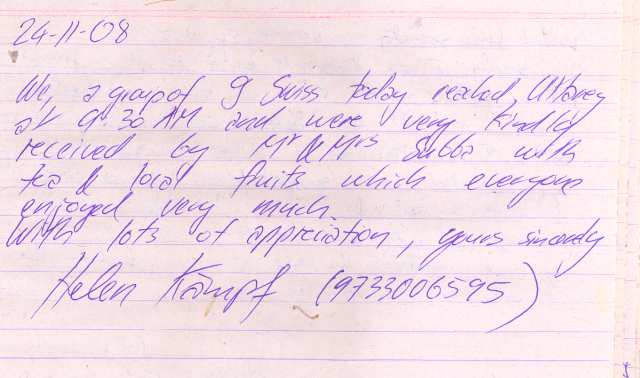 24-11-08
We, a group of 9 Swiss today reached Uttarey
at 9.30 AM and were very kindly
received by Mr & Mrs Subba with
tea & local fruits which everyone
enjoyed very much.
With lots of appreciation, yours sincerely
Helen Kämpf (9733006595)